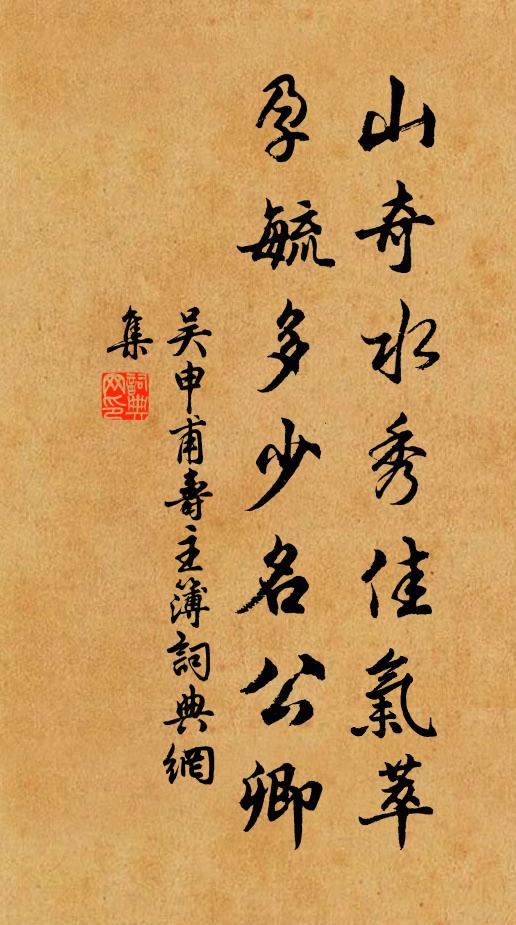 山奇水秀佳氣萃
孕毓多少名公卿
吴申甫壽主簿詞典網
集
詞典网印